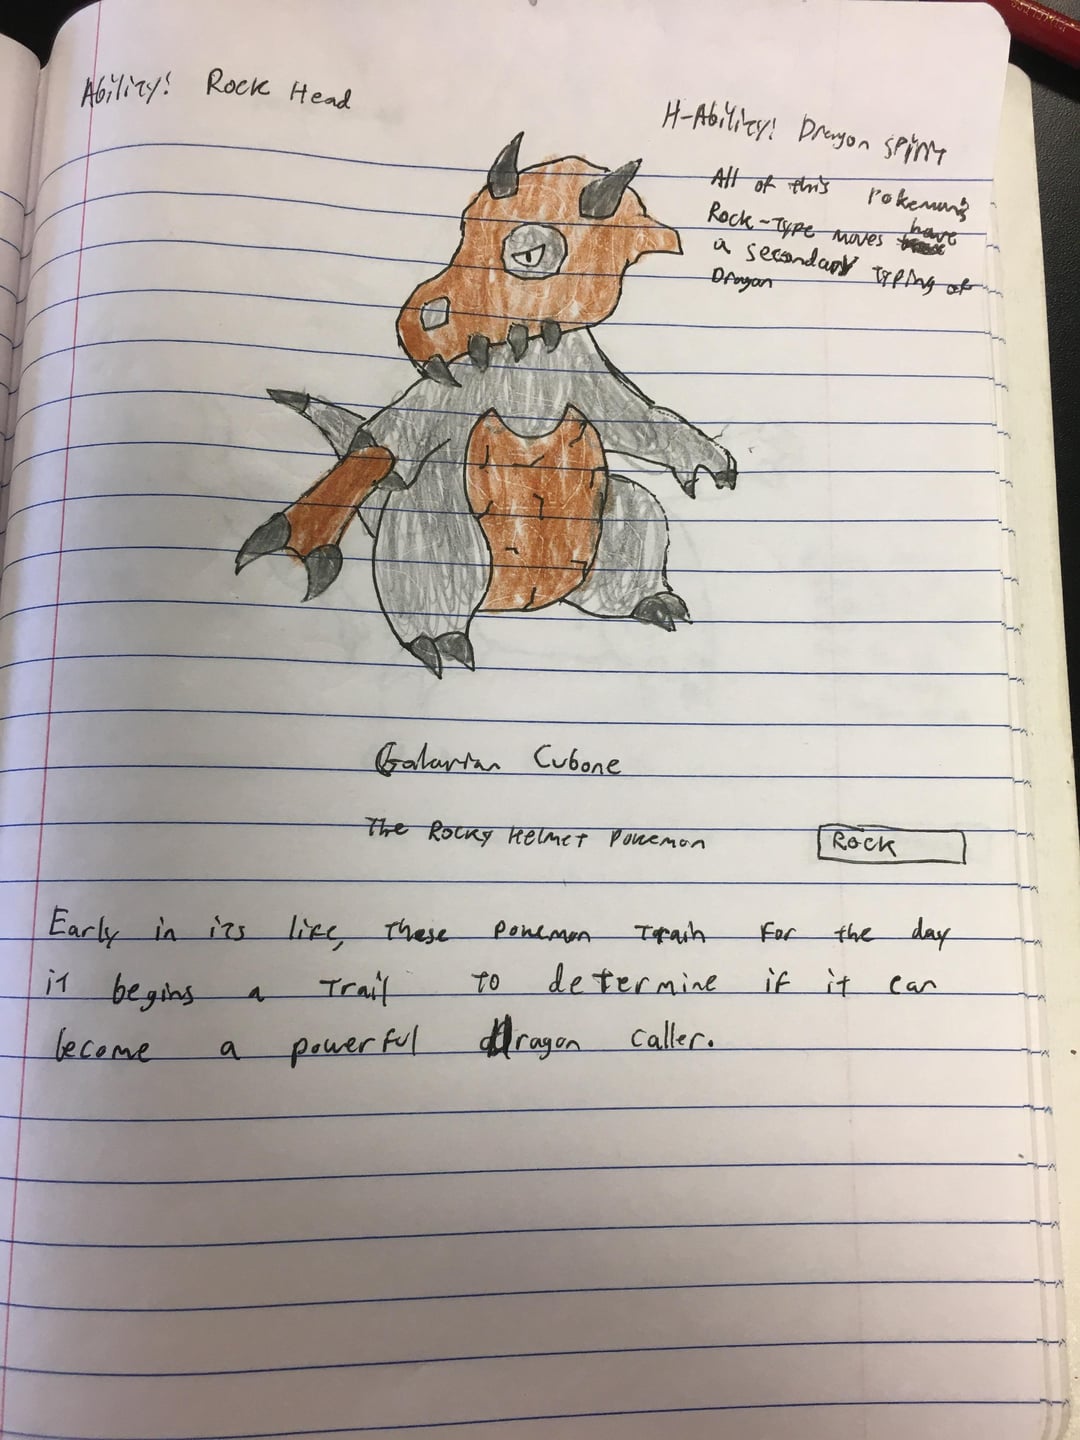 Ability: Rock Head
H-Ability: Dragon Spirit
All of this Pokemon's
Rock-Type moves have
a secondary typing of
Dragon
Galarian Cubone
The Rocky Helmet Pokemon
Rock
Early in its life, these Pokemon train for the day
it begins a trail to determine if it can
become a powerful dragon caller.